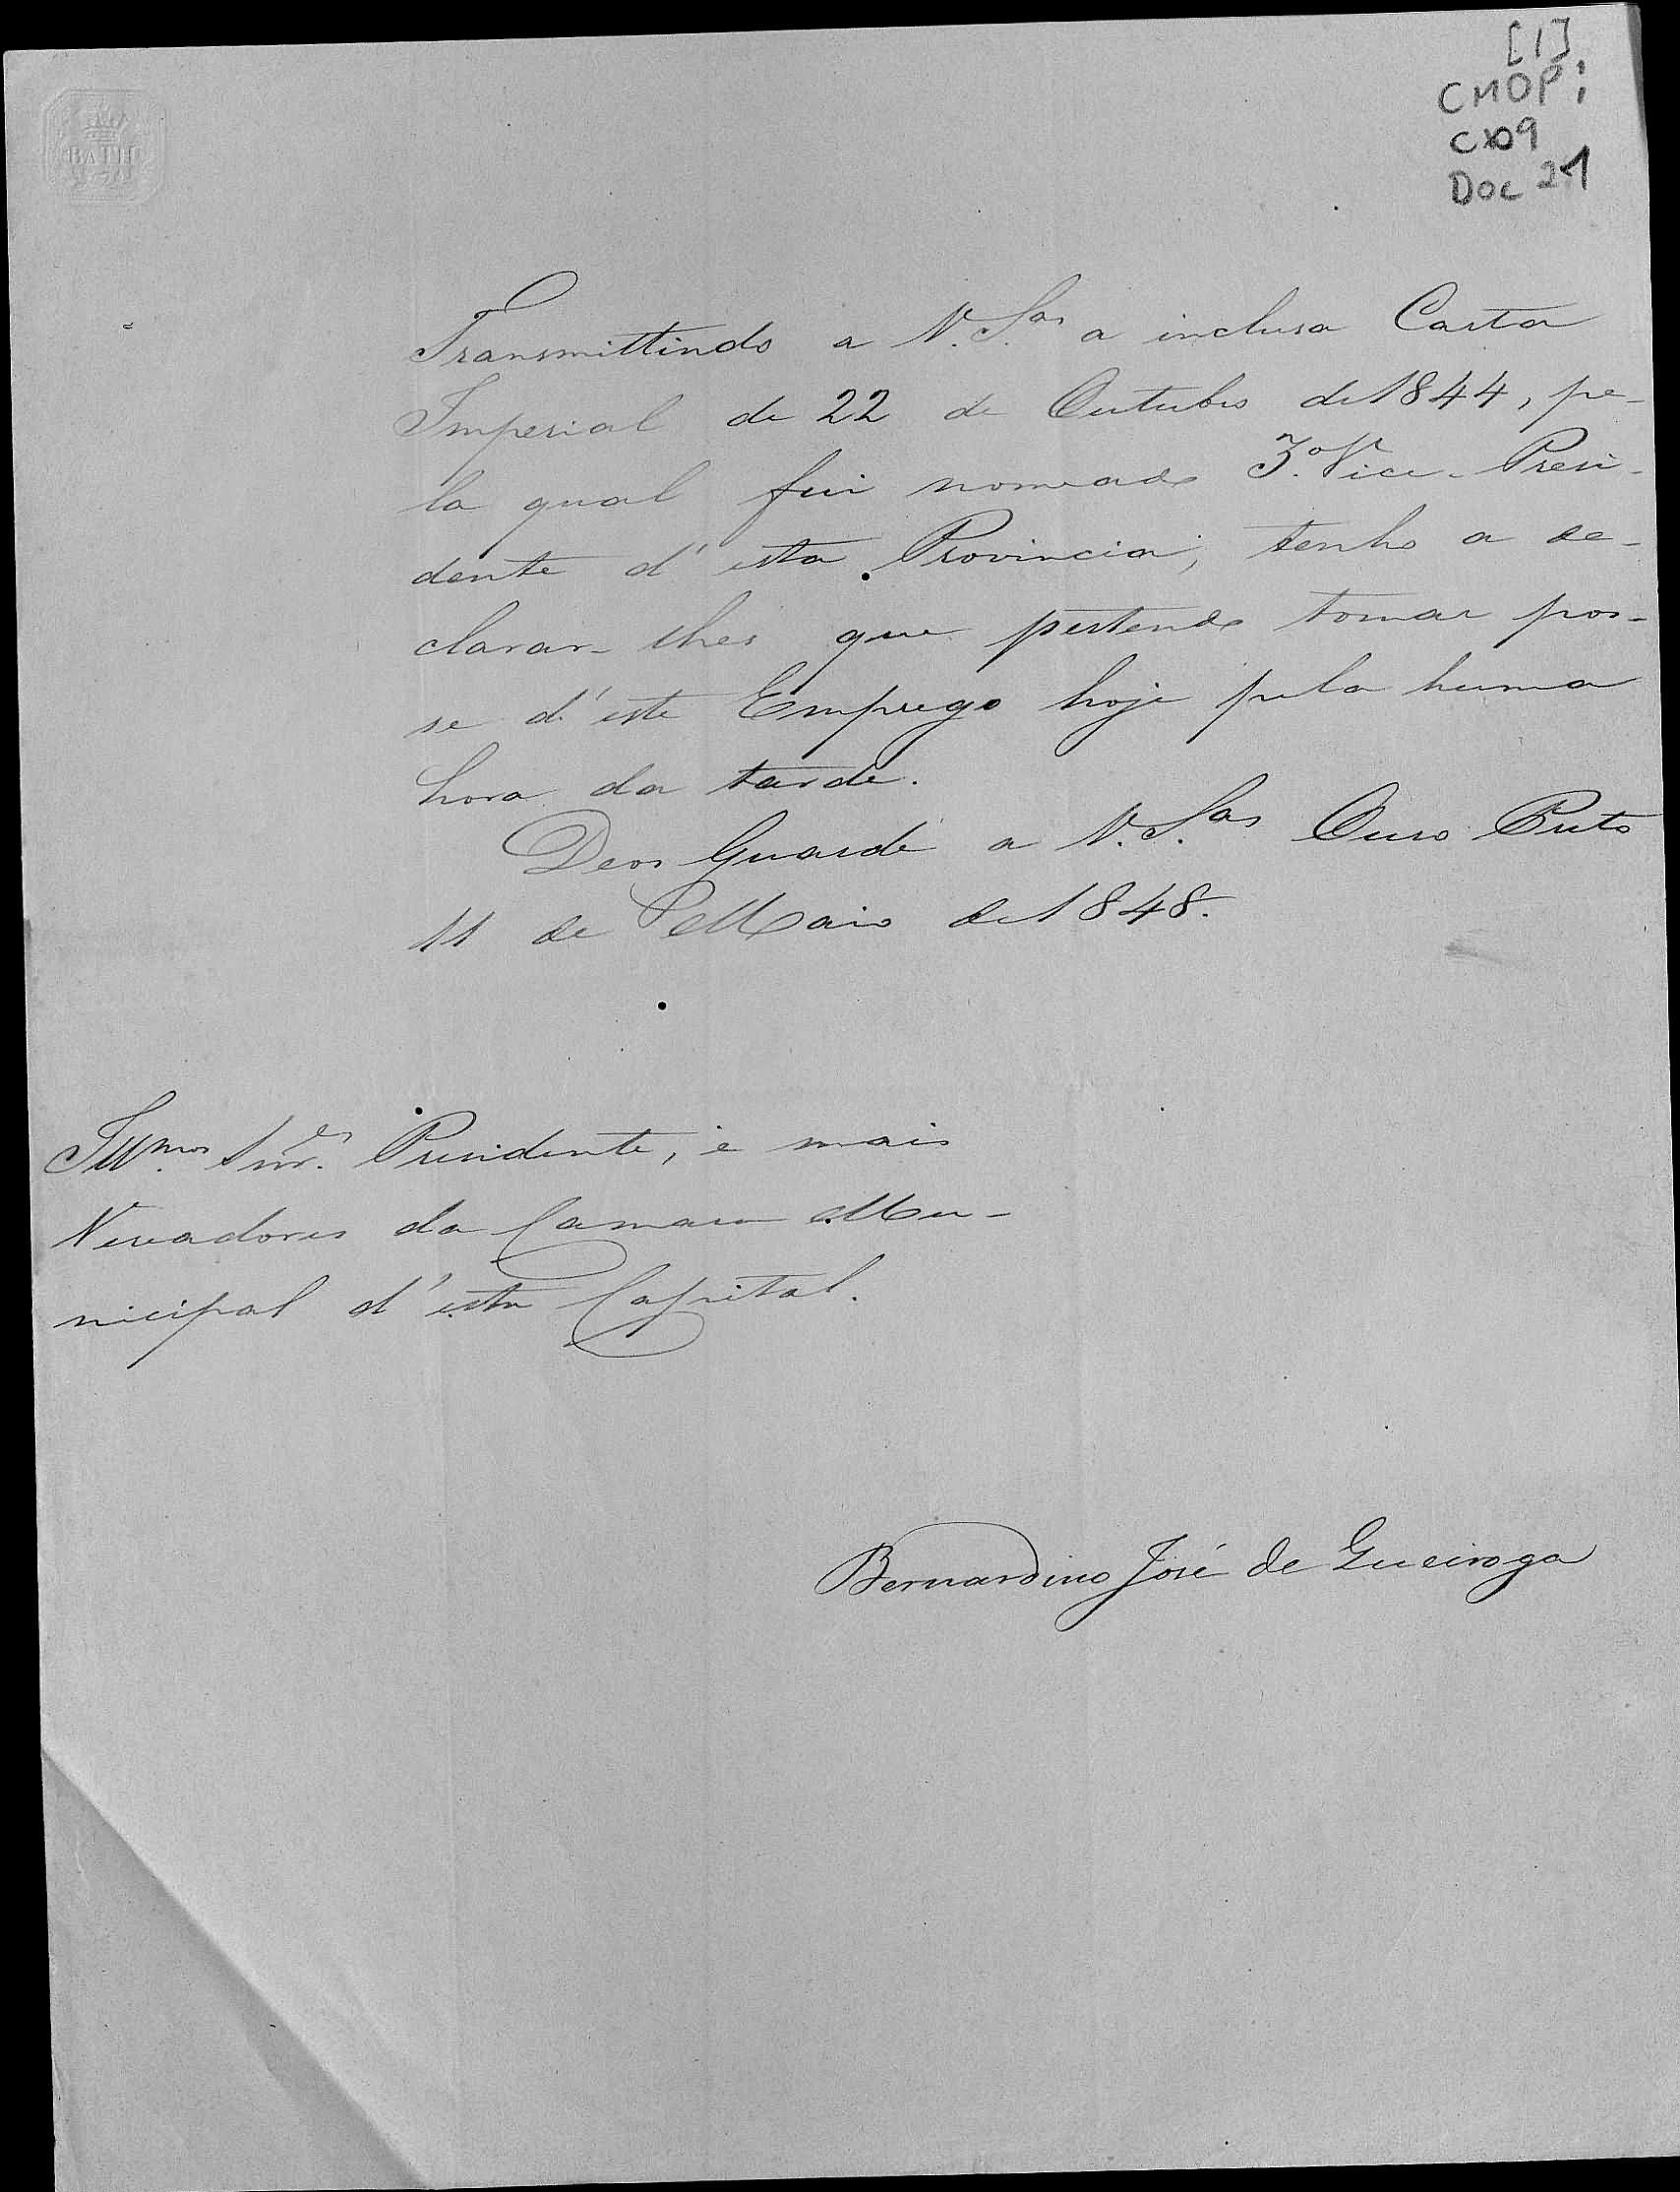 [1]
CMOP;
CX09
Doc 21
BATH
Transmittindo a V. S.as a inclusa Carta
Imperial de 22 de Outubro de 1844, pe-
la qual fui nomeado 3.º Vice-Presi-
dente d'esta Provincia, tenho a de-
clarar-lhes que pertendo tomar pos-
se d'este Emprego hoje pela huma
hora da tarde.
Deos Guarde a V. S.as Ouro Preto
11 de Maio de 1848.
Ill.mos Snr.es Presidente, e mais
Vereadores da Camara Mu-
nicipal d'esta Capital.
Bernardino José de Queiroga